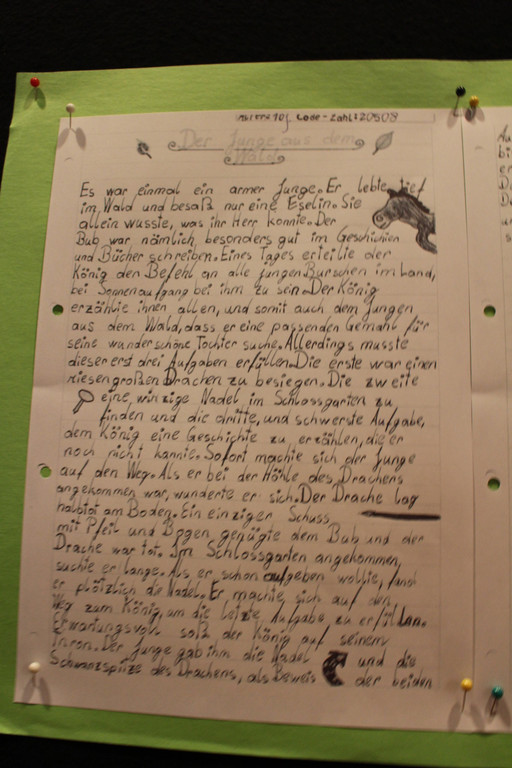 Code-Zahl: 20508
Der Junge aus dem
Wald
Es war einmal ein armer Junge. Er lebte tief
im Wald und besaß nur eine Eselin. Sie
allein wusste, was ihr Herr konnte. Der
Bub war nämlich besonders gut im Geschichten
und Bücher schreiben. Eines Tages erteilte der
König den Befehl an alle jungen Burschen im Land,
bei Sonnenaufgang bei ihm zu sein. Der König
erzählte ihnen allen, und somit auch dem Jungen
aus dem Wald, dass er eine passenden Gemahl für
seine wunderschöne Tochter suche. Allerdings musste
dieser erst drei Aufgaben erfüllen. Die erste war einen
riesengroßen Drachen zu besiegen. Die zweite
eine winzige Nadel im Schlossgarten zu
finden und die dritte, und schwerste Aufgabe,
dem König eine Geschichte zu erzählen, die er
noch nicht kannte. Sofort machte sich der Junge
auf den Weg. Als er bei der Höhle des Drachens
angekommen war, wunderte er sich. Der Drache lag
halbtot am Boden. Ein einziger Schuss
mit Pfeil und Bogen genügte dem Bub und der
Drache war tot. Im Schlossgarten angekommen,
suchte er lange. Als er schon aufgeben wollte, fand
er plötzlich die Nadel. Er machte sich auf den
Weg zum König, um die letzte Aufgabe zu erfüllen.
Erwartungsvoll saß der König auf seinem
Thron. Der Junge gab ihm die Nadel und die
Schwanzspitze des Drachens, als Beweis der beiden